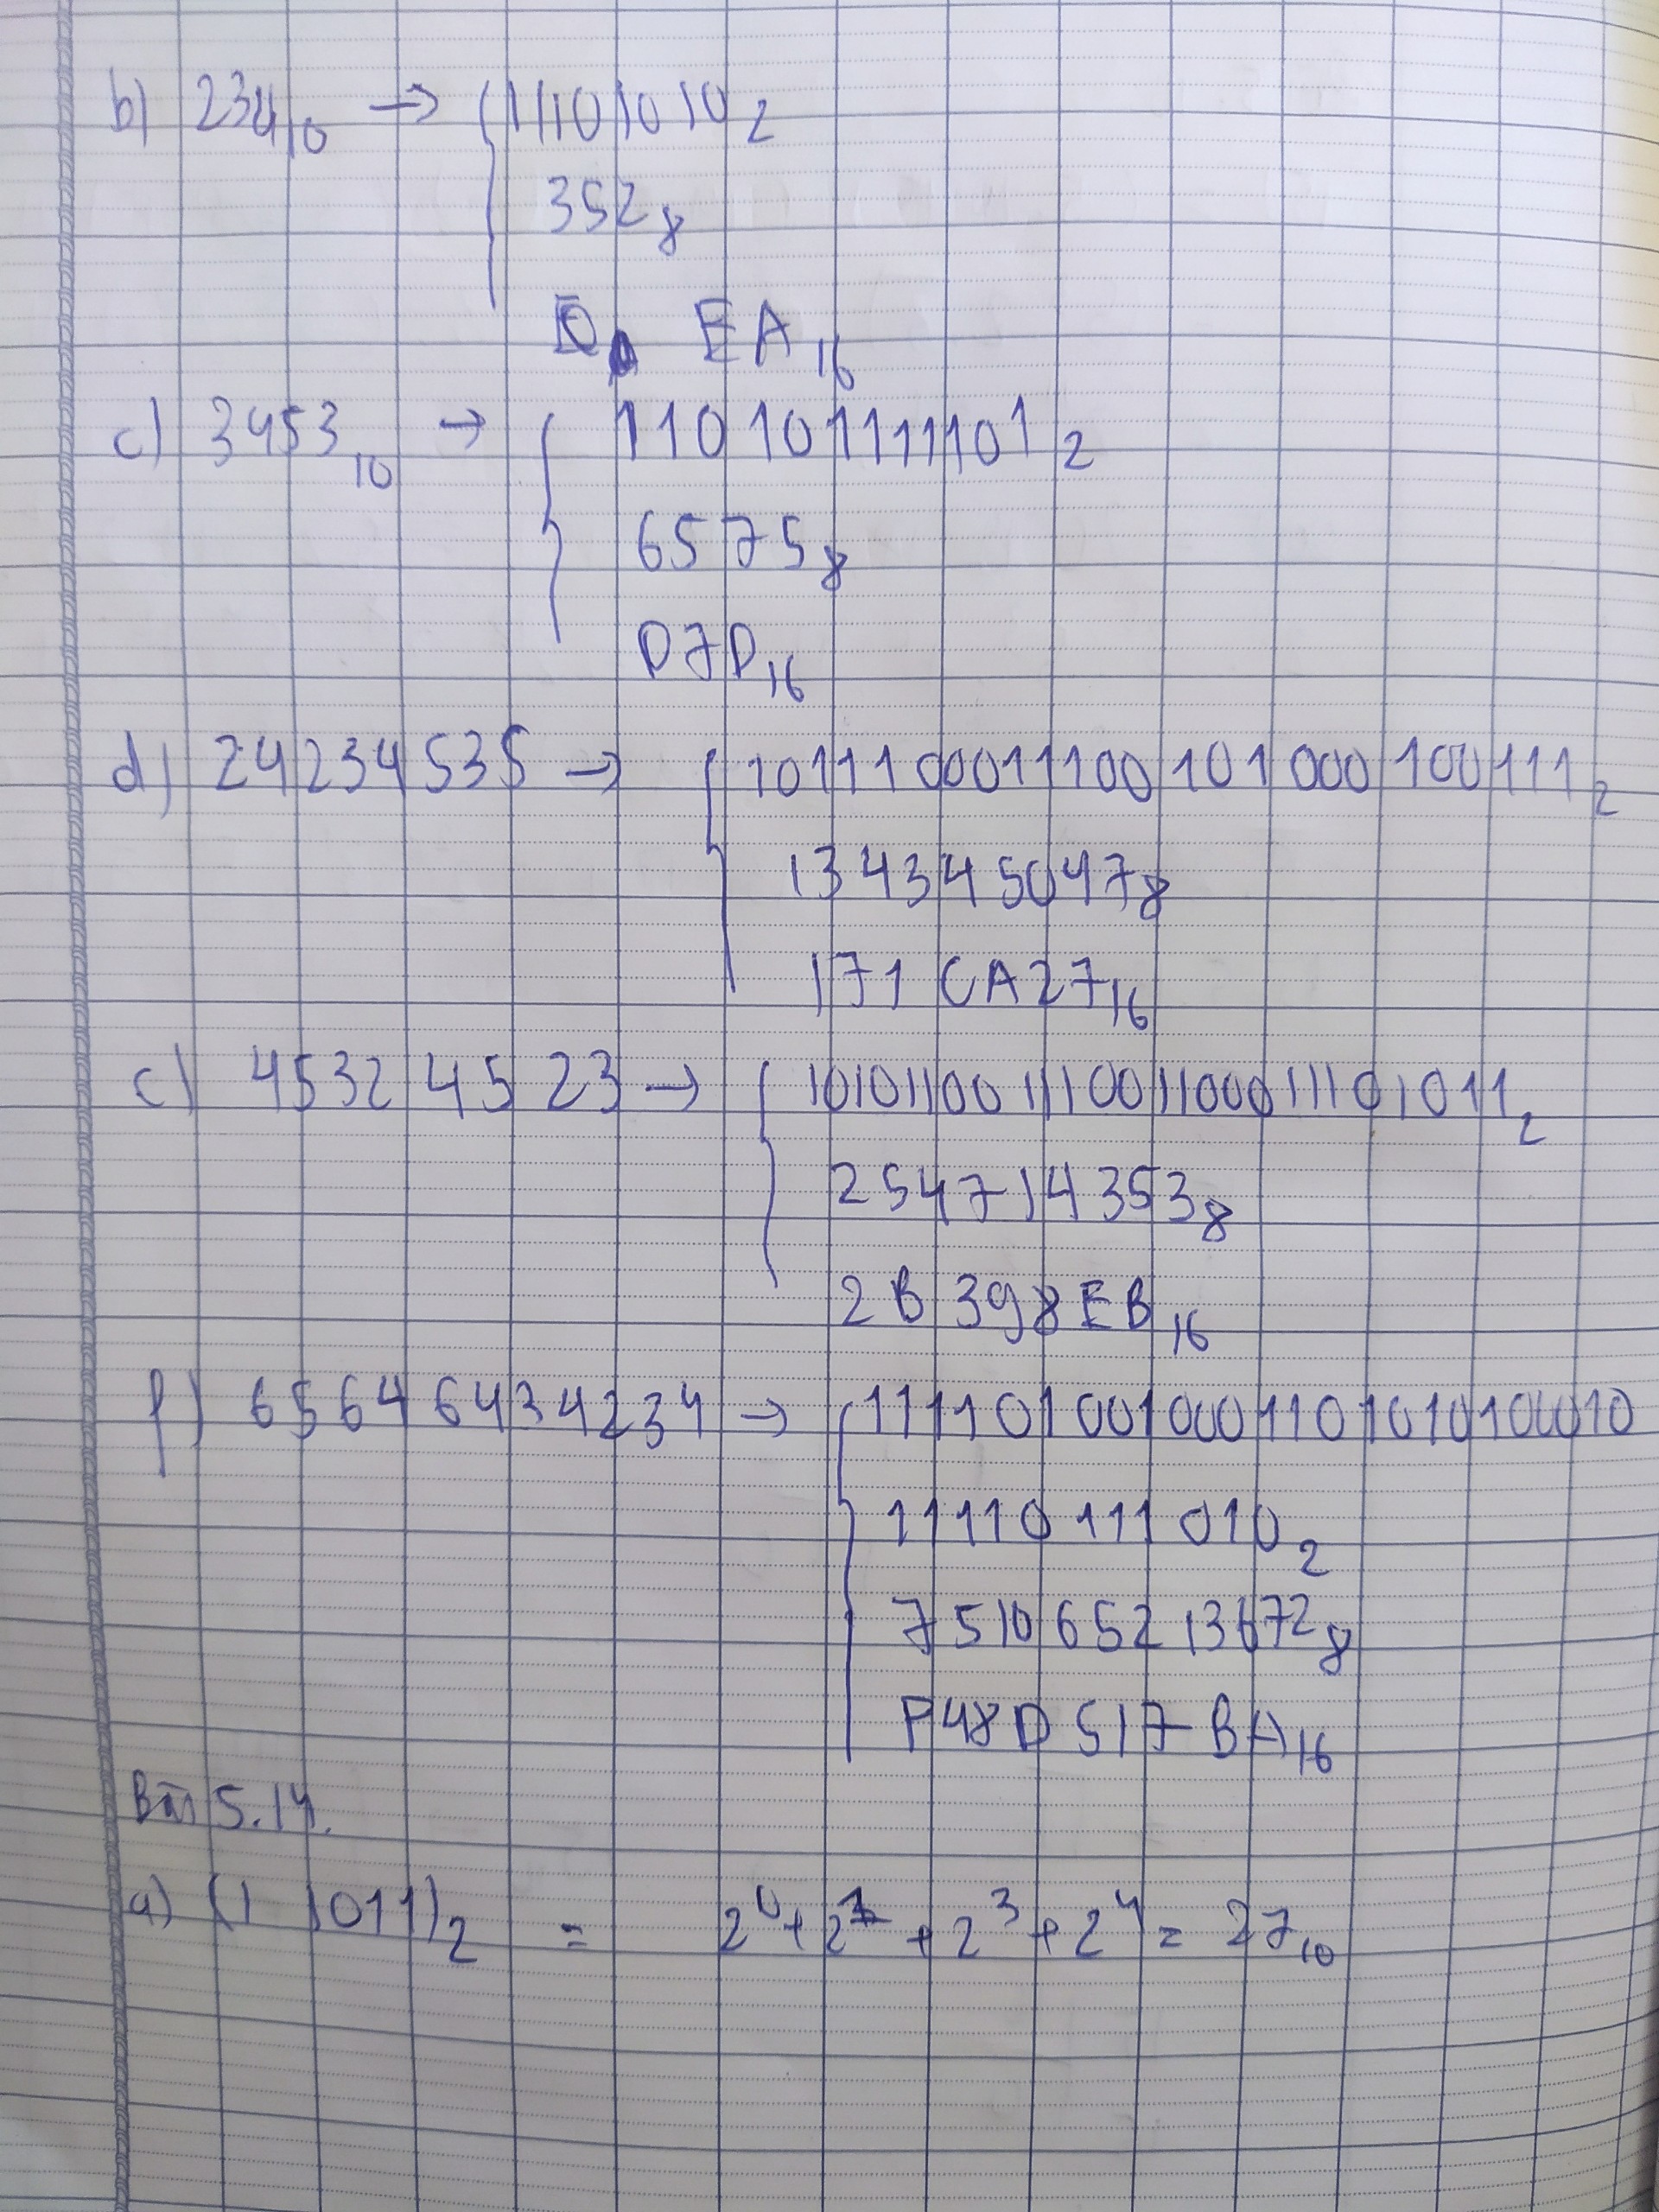 b) 234₁₀ → 11101010₂
352₈
EA₁₆
c) 3453₁₀ → 110101111101₂
6575₈
D7D₁₆
d) 24234535 → 1011100011100101000100111₂
134345047₈
171CA27₁₆
c) 45324523 → 10101100111001100011101011₂
254714353₈
2B398EB₁₆
f) 65646434234 → 1111010010001101010100010
11110111010₂
751065213672₈
F48D517BA₁₆
Bài 5.14.
a) (11011)₂ = 2⁰ + 2¹ + 2³ + 2⁴ = 27₁₀